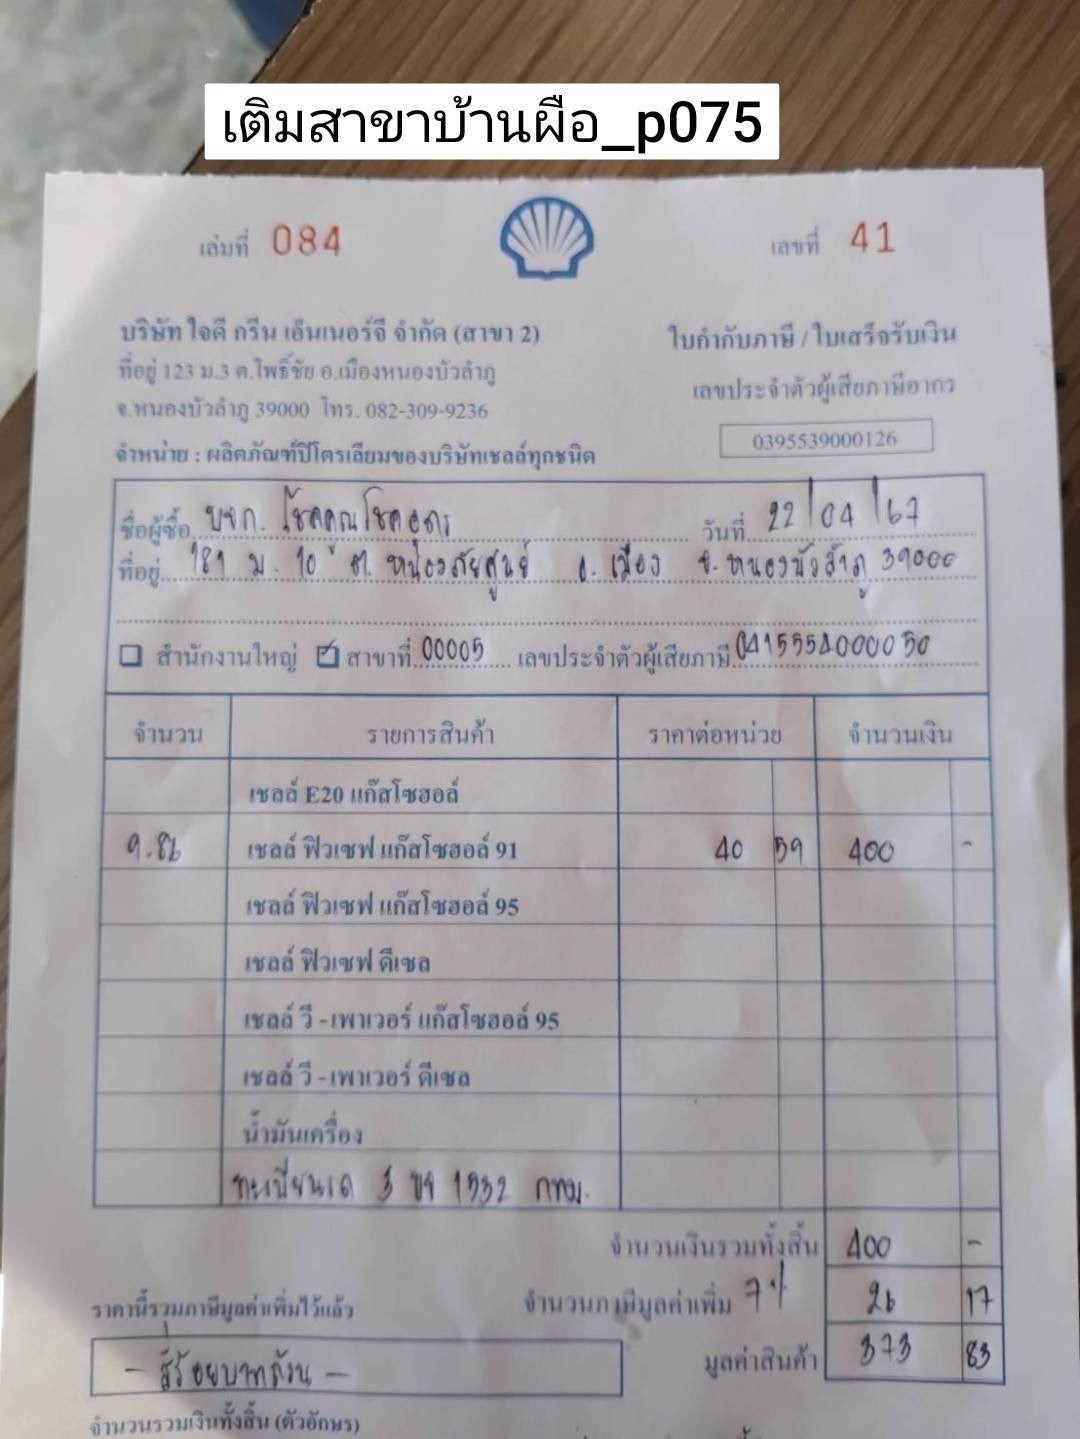 เติมสาขาบ้านผือ_p075
เล่มที่ 084
เลขที่ 41
บริษัท ใจดี กรีน เอ็นเนอร์จี จำกัด (สาขา 2)
ใบกำกับภาษี / ใบเสร็จรับเงิน
ที่อยู่ 123 ม.3 ต.โพธิ์ชัย อ.เมืองหนองบัวลำภู
เลขประจำตัวผู้เสียภาษีอากร
จ.หนองบัวลำภู 39000 โทร. 082-309-9236
0395539000126
จำหน่าย : ผลิตภัณฑ์ปิโตรเลียมของบริษัทเชลล์ทุกชนิด
ชื่อผู้ซื้อ บจก. โชคคูณโชคอุดร วันที่ 22/04/67
ที่อยู่ 181 ม. 10 ต. หนองภัยศูนย์ อ. เมือง จ. หนองบัวลำภู 39000
สำนักงานใหญ่ สาขาที่ 00005 เลขประจำตัวผู้เสียภาษี 0415554000050
จำนวน รายการสินค้า ราคาต่อหน่วย จำนวนเงิน
เชลล์ E20 แก๊สโซฮอล์
9.86 เชลล์ ฟิวเซฟ แก๊สโซฮอล์ 91 40 59 400 -
เชลล์ ฟิวเซฟ แก๊สโซฮอล์ 95
เชลล์ ฟิวเซฟ ดีเซล
เชลล์ วี - เพาเวอร์ แก๊สโซฮอล์ 95
เชลล์ วี - เพาเวอร์ ดีเซล
น้ำมันเครื่อง
3 ขจ 1532 กทม.
จำนวนเงินรวมทั้งสิ้น 400 -
ราคานี้รวมภาษีมูลค่าเพิ่มไว้แล้ว จำนวนภาษีมูลค่าเพิ่ม 7% 26 17
- สี่ร้อยบาทถ้วน - มูลค่าสินค้า 373 83
จำนวนรวมเงินทั้งสิ้น (ตัวอักษร)